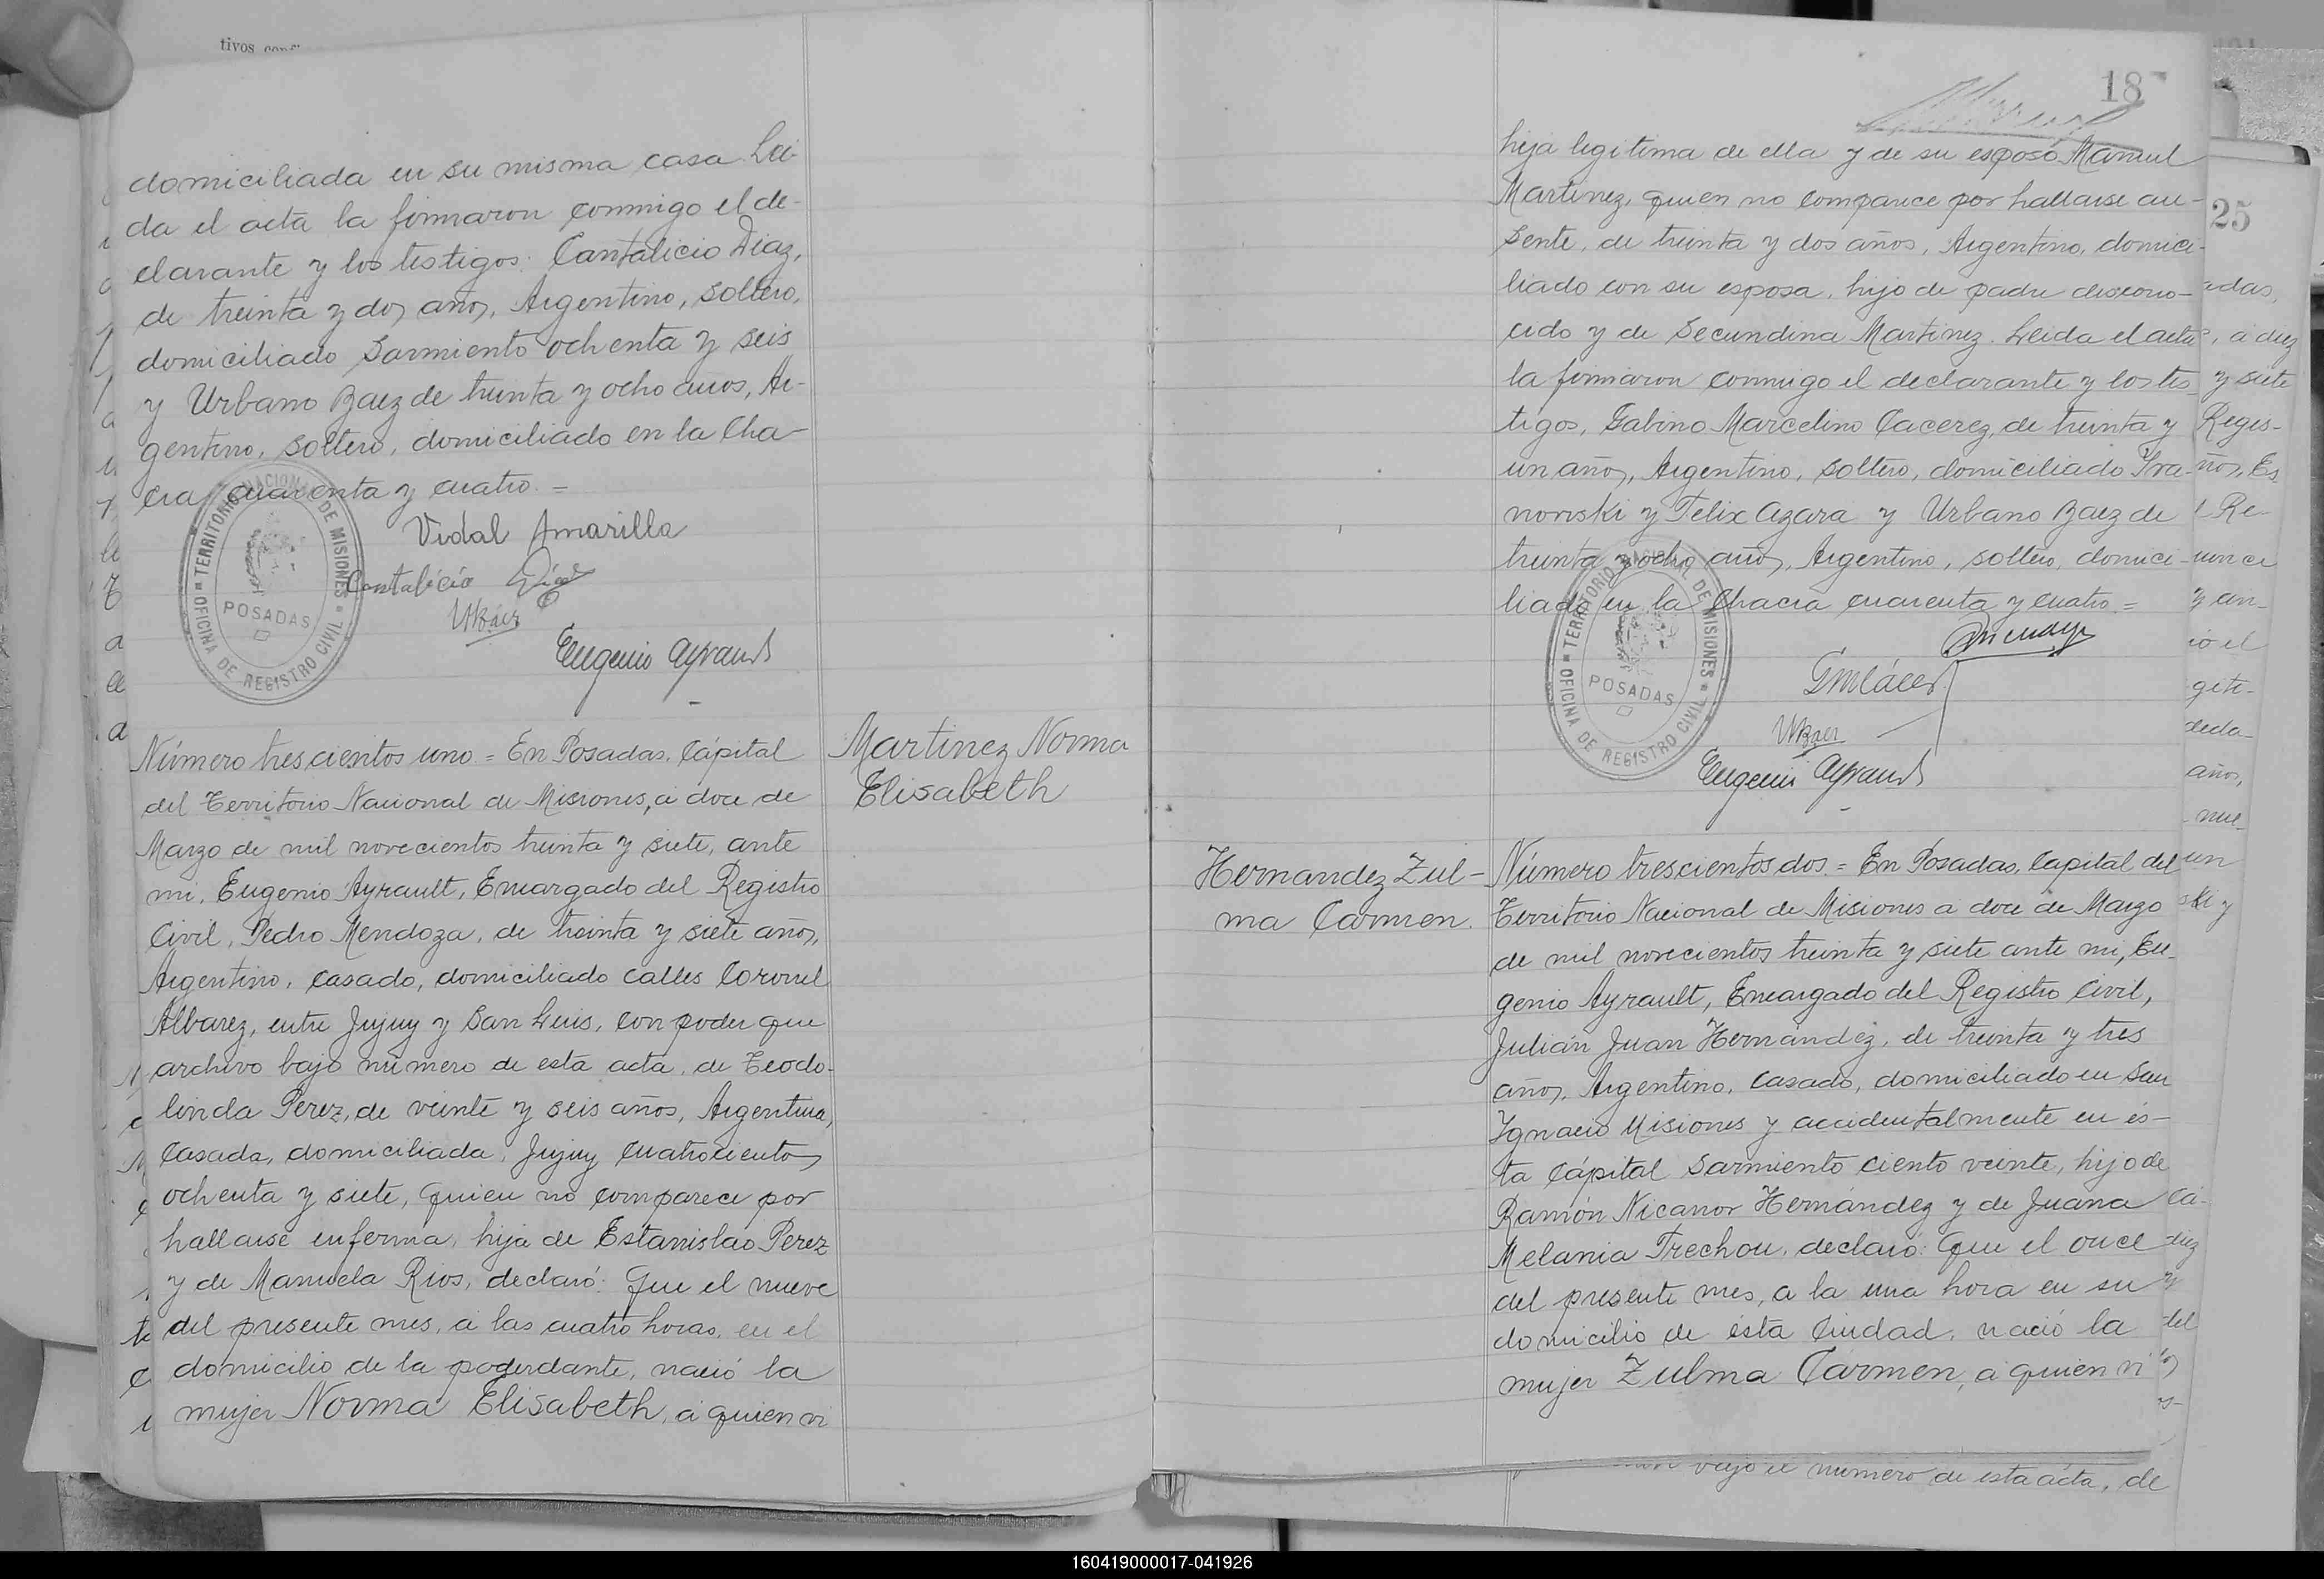 tivos
domiciliada en su misma casa Lei-
da el acta la firmaron conmigo el de-
clarante y los testigos: Cantalicio Diaz,
de treinta y dos años, Argentino, soltero,
domiciliado Sarmiento ochenta y seis
y Urbano Baez de treinta y ocho años, Ar-
gentino, soltero, domiciliado en la Cha-
cra cuarenta y cuatro =
TERRITORIO NACIONAL DE MISIONES
POSADAS
OFICINA DE REGISTRO CIVIL
Vidal Amarilla
Cantalicio Díaz
UBáez
Eugenio Ayrault
Número trescientos uno = En Posadas, Cápital
del Territorio Nacional de Misiones, a doce de
Marzo de mil novecientos treinta y siete, ante
mi, Eugenio Ayrault, Encargado del Registro
Civil, Pedro Mendoza, de treinta y siete años,
Argentino, casado, domiciliado calles Coronel
Albarez, entre Jujuy y San Luis, con poder que
archivo bajo número de esta acta, de Teodo-
linda Perez, de veinte y seis años, Argentina,
casada, domiciliada, Jujuy cuatrocientos
ochenta y siete, quien no comparece por
hallarse enferma, hija de Estanislao Perez
y de Manuela Rios, declaró: Que el nueve
del presente mes, a las cuatro horas, en el
domicilio de la poderdante, nació la
mujer Norma Elisabeth, a quien vi
Martinez Norma
Elisabeth
18
hija legitima de ella y de su esposo Manuel
Martinez, quien no comparece por hallarse au-
sente, de treinta y dos años, Argentino, domici-
liado con su esposa, hijo de padre descono-
cido y de Secundina Martinez. Leida el acta
la firmaron conmigo el declarante y los tes-
tigos, Gabino Marcelino Cacerez, de treinta y
un años, Argentino, soltero, domiciliado Tra-
nowski y Felix Azara y Urbano Baez de
treinta y ocho años, Argentino, soltero, domici-
liado en la Chacra cuarenta y cuatro =
TERRITORIO NACIONAL DE MISIONES
POSADAS
OFICINA DE REGISTRO CIVIL
GMCácer
UBáez
Eugenio Ayrault
Hernandez Zul-
ma Carmen.
Número trescientos dos = En Posadas, Capital del
Territorio Nacional de Misiones a doce de Marzo
de mil novecientos treinta y siete ante mi, Eu-
genio Ayrault, Encargado del Registro Civil,
Julián Juan Hernández, de treinta y tres
años, Argentino, casado, domiciliado en San
Ignacio Misiones y accidentalmente en és-
ta Cápital Sarmiento ciento veinte, hijo de
Ramón Nicanor Hernández y de Juana
Melania Trechou, declaró: Que el once
del presente mes, a la una hora en su
domicilio de ésta Ciudad, nació la
mujer Zulma Carmen, a quien vi
25
adas,
, a diez
y siete
Regis-
ños, Es
l Re-
y an-
io el
giti-
decla-
años,
nue-
un
ski y
diez
del
bajo el número de esta acta, de
160419000017-041926